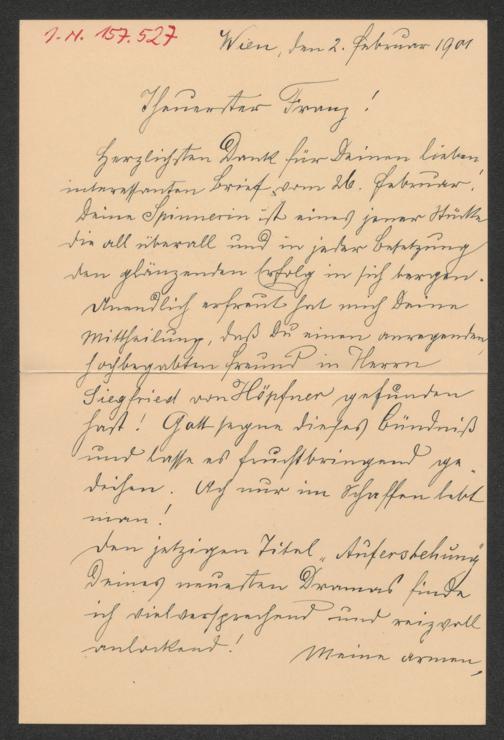 I. N. 157.527
Wien, den 2. Februar 1901
Theuerster Franz!
Herzlichsten Dank für Deinen lieben
interessanten Brief vom 26. Februar!
Deine Spinnerin ist eines jener Stücke
die all überall und in jeder Besetzung
den glänzenden Erfolg in sich bergen.
Unendlich erfreut hat mich Deine
Mittheilung, daß Du einen anregenden,
hochbegabten Freund in Herrn
Siegfried von Höpfner gefunden
hast! Gott segne dieses Bündniß
und lasse es fruchtbringend ge-
deihen. Ach nur im Schaffen lebt
man!
Den jetzigen Titel „Auferstehung"
Deines neuesten Dramas finde
ich vielversprechend und reizvoll
anlockend!
Meine armen,